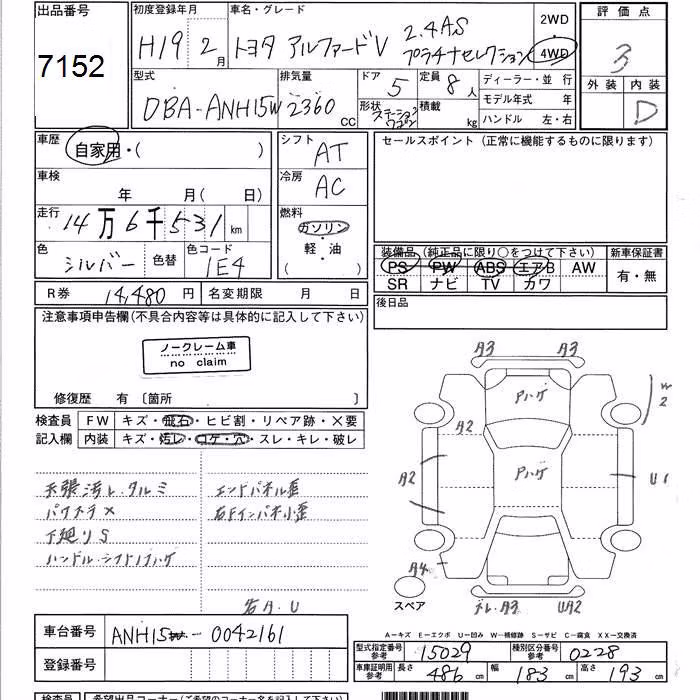 出品番号
7152
初度登録年月
H19 2月
車名・グレード
トヨタ アルファードV 2.4AS
プラチナセレクション
2WD
4WD
評価点
3
外装 内装
D
型式
DBA-ANH15W
排気量
2360 CC
ドア
5
定員
8人
形状
ステーション
ワゴン
積載
kg
ディーラー・並 行
モデル年式 年
ハンドル 左・右
車歴
自家用・( )
車検
年 月( 日)
走行
14万6千531 km
色
シルバー
色替
色コード
1E4
シフト
AT
冷房
AC
燃料
ガソリン
・
軽・油
( )
セールスポイント (正常に機能するものに限ります)
装備品 (純正品に限り○をつけて下さい)
PS PW ABS エアB AW
SR ナビ TV カワ
新車保証書
有・無
後日品
R券 14,480 円
名変期限 月 日
注意事項申告欄(不具合内容等は具体的に記入して下さい)
ノークレーム車
no claim
修復歴 有 〔箇所 〕
検査員
記入欄
FW キズ・飛石・ヒビ割・リペア跡・×要
内装 キズ・汚レ・コゲ・穴・スレ・キレ・破レ
天張汚レ.タルミ
パワトラ×
下廻りS
ハンドル.シフトノブハゲ
エンドパネル歪
右Fインパネ小歪
右A.U
A3 A3
Pハゲ
W2
A2
A2
Pハゲ
U1
A4
スペア
A3 UA2
A-キズ E-エクボ U-凹み W-補修跡 S-サビ C-腐食 XX-交換済
車台番号
ANH15W-0042161
登録番号
型式指定番号
参考
15029
種別区分番号
参考
0228
車庫証明用
参考
長さ
486 cm
幅
183 cm
高さ
193 cm
検査員
希望出品コーナー(ご希望のコーナー名を記入して下さい)